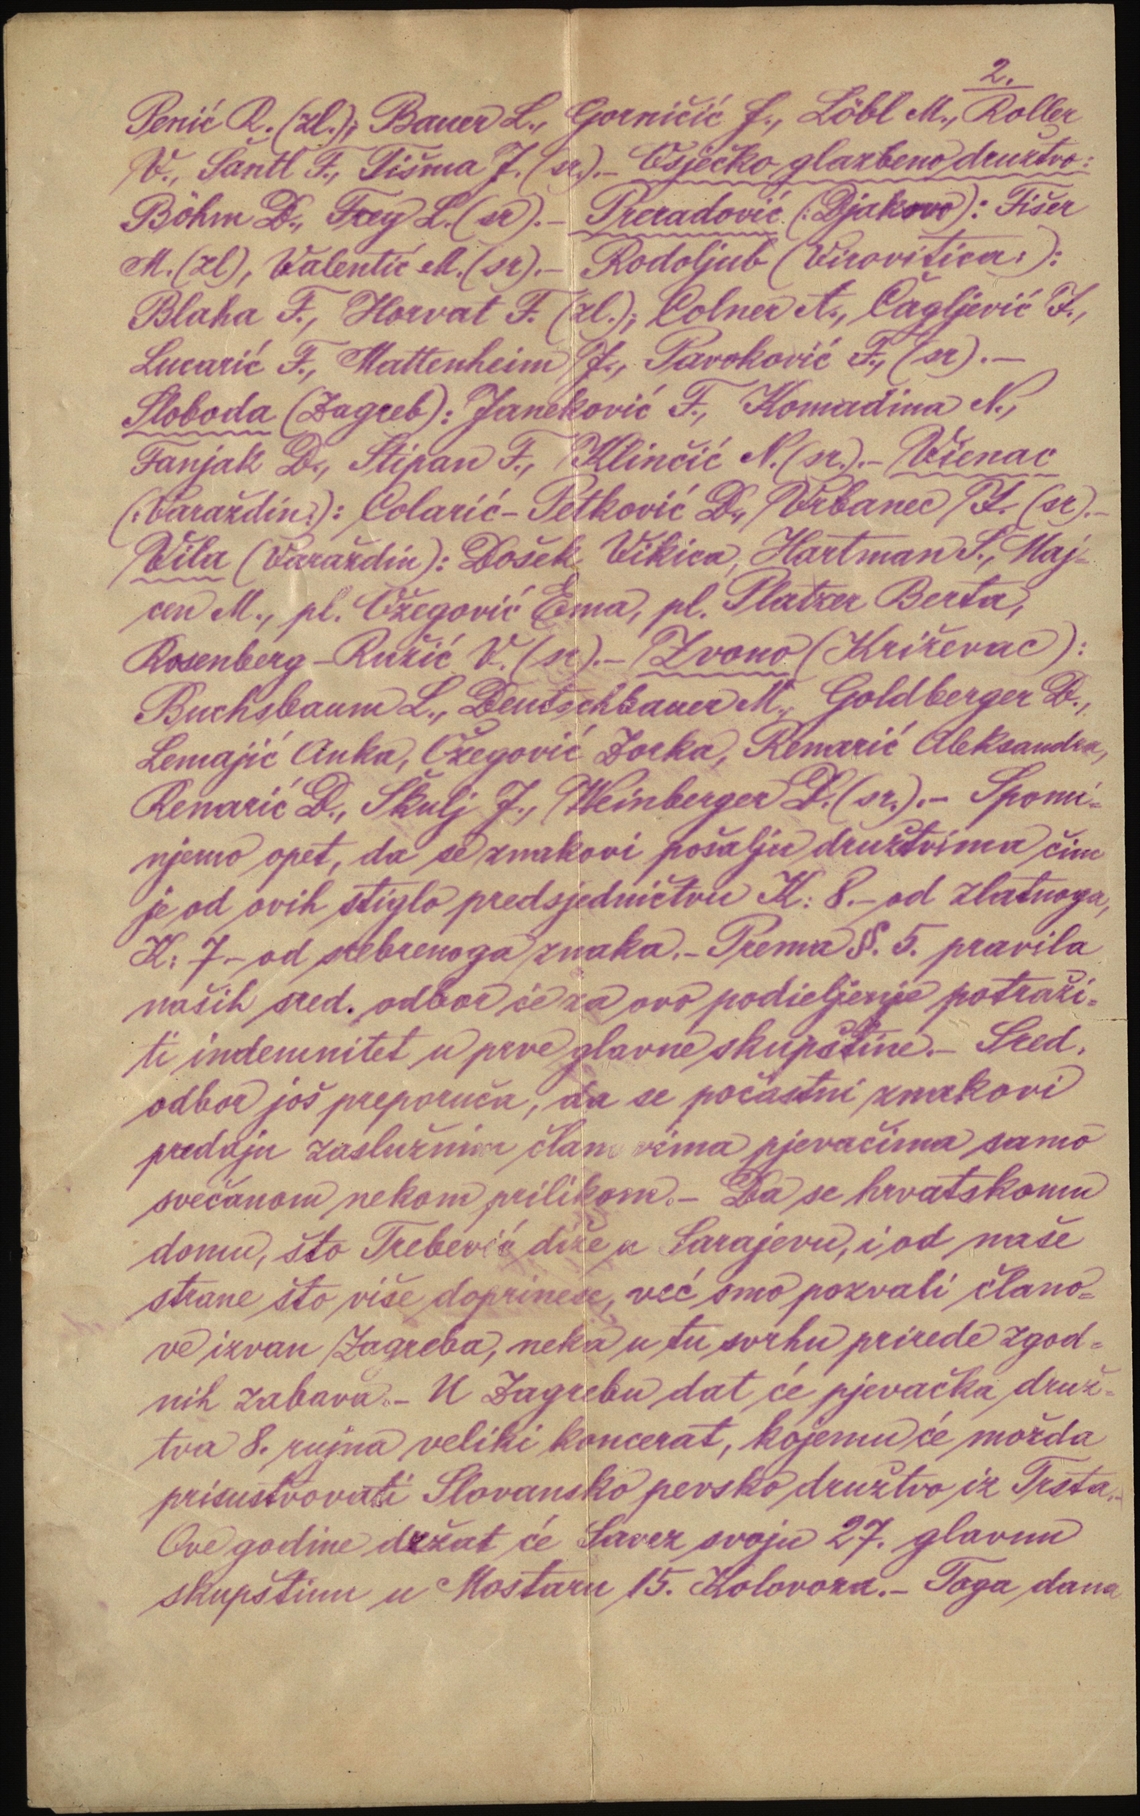 2.
Penić R. (zl.); Bauer L., Gorničić J., Löbl M., Roller
V., Šantl F., Tišma J. (sr.).– Osječko glazbeno družtvo:
Böhm D., Frey L. (sr).– Preradović (:Djakovo): Fišer
M. (zl), Valentić M. (sr).– Rodoljub (Virovitica:):
Blaha F., Horvat F. (zl.); Colner A., Čagljević F.,
Lucarić F., Mattenheim J., Pavoković F., (sr).–
Sloboda (Zagreb): Janeković F., Komadina N.,
Fanjak D., Stipan F., Klinčić N. (sr.).– Vienac
(:Varaždin:): Colarić-Petković D., Vrbanec F. (sr).–
Vila (Varaždin): Došek Vikica, Hartman S., Maj-
cen M., pl. Ožegović Ema, pl. Platzer Berta,
Rosenberg-Ružić V. (sr).– Zvono (Križevac):
Buchsbaum L., Deutschbauer M., Goldberger D.,
Lemajić Anka, Ožegović Zorka, Remarić Aleksandra,
Remarić D., Škulj J., Weinberger D. (sr.).– Spomi-
njemo opet, da se znakovi pošalju družtvima čim
je od ovih stiglo predsjedničtvu K: 8.– od zlatnoga,
K: 7.– od srebrenoga znaka.– Prema §. 5. pravila
naših sred. odbor će za ovo podieljenje potraži-
ti indemnitet u prve glavne skupštine.– Sred.
odbor još preporuča, da se počastni znakovi
predaju zaslužnim članovima pjevačima samo
svečanom nekom prilikom.– Da se hrvatskomu
domu, što Trebević diže u Sarajevu, i od naše
strane što više doprinese, već smo pozvali člano-
ve izvan Zagreba, neka u tu svrhu prirede zgod-
nih zabava.– U Zagrebu dat će pjevačka druž-
tva 8. rujna veliki koncerat, kojemu će možda
prisustvovati Slovansko pevsko družtvo iz Trsta.–
Ove godine držat će Savez svoju 27. glavnu
skupštinu u Mostaru 15. Kolovoza.– Toga dana